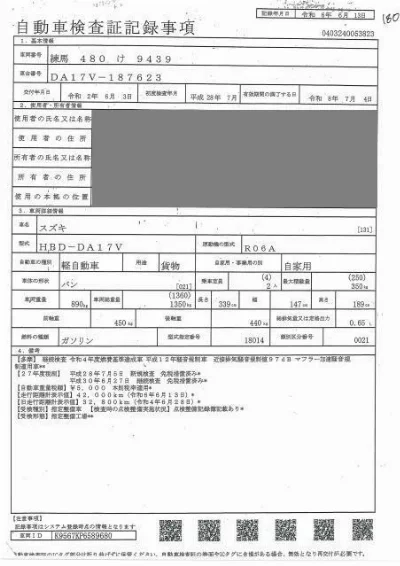 記録年月日 令和 6年 6月 13日
180
自動車検査証記録事項
0403240053823
1．基本情報
車両番号 練馬 480 け 9439
車台番号 DA17V-187623
交付年月日 令和 2年 6月 3日 初度検査年月 平成 28年 7月 有効期間の満了する日 令和 8年 7月 4日
2．使用者・所有者情報
使用者の氏名又は名称
使用者の住所
所有者の氏名又は名称
所有者の住所
使用の本拠の位置
3．車両詳細情報
車名 スズキ [131]
型式 HBD-DA17V 原動機の型式 R06A
自動車の種別 軽自動車 用途 貨物 自家用・事業用の別 自家用
車体の形状 バン [021] 乗車定員 (4) 2人 最大積載量 (250) 350kg
車両重量 890kg 車両総重量 (1360) 1350kg 長さ 339cm 幅 147cm 高さ 189cm
前軸重 450kg 後軸重 440kg 総排気量又は定格出力 0.65L
燃料の種類 ガソリン 型式指定番号 18014 類別区分番号 0021
4．備考
平成28年7月5日 新規検査
平成30年6月27日 継続検査
【自動車重量税額】¥5,000 本則税率適用*
【走行距離計表示値】42,000km(令和6年6月13日)*
【旧走行距離計表示値】32,800km(令和4年6月28日)*
【受検種別】指定整備車 【検査時の点検整備実施状況】点検整備記録簿記載あり*
【受検形態】指定整備工場**
【注意事項】
記録事項はシステム登録時点の情報となります
車両ID K9567KP6589680